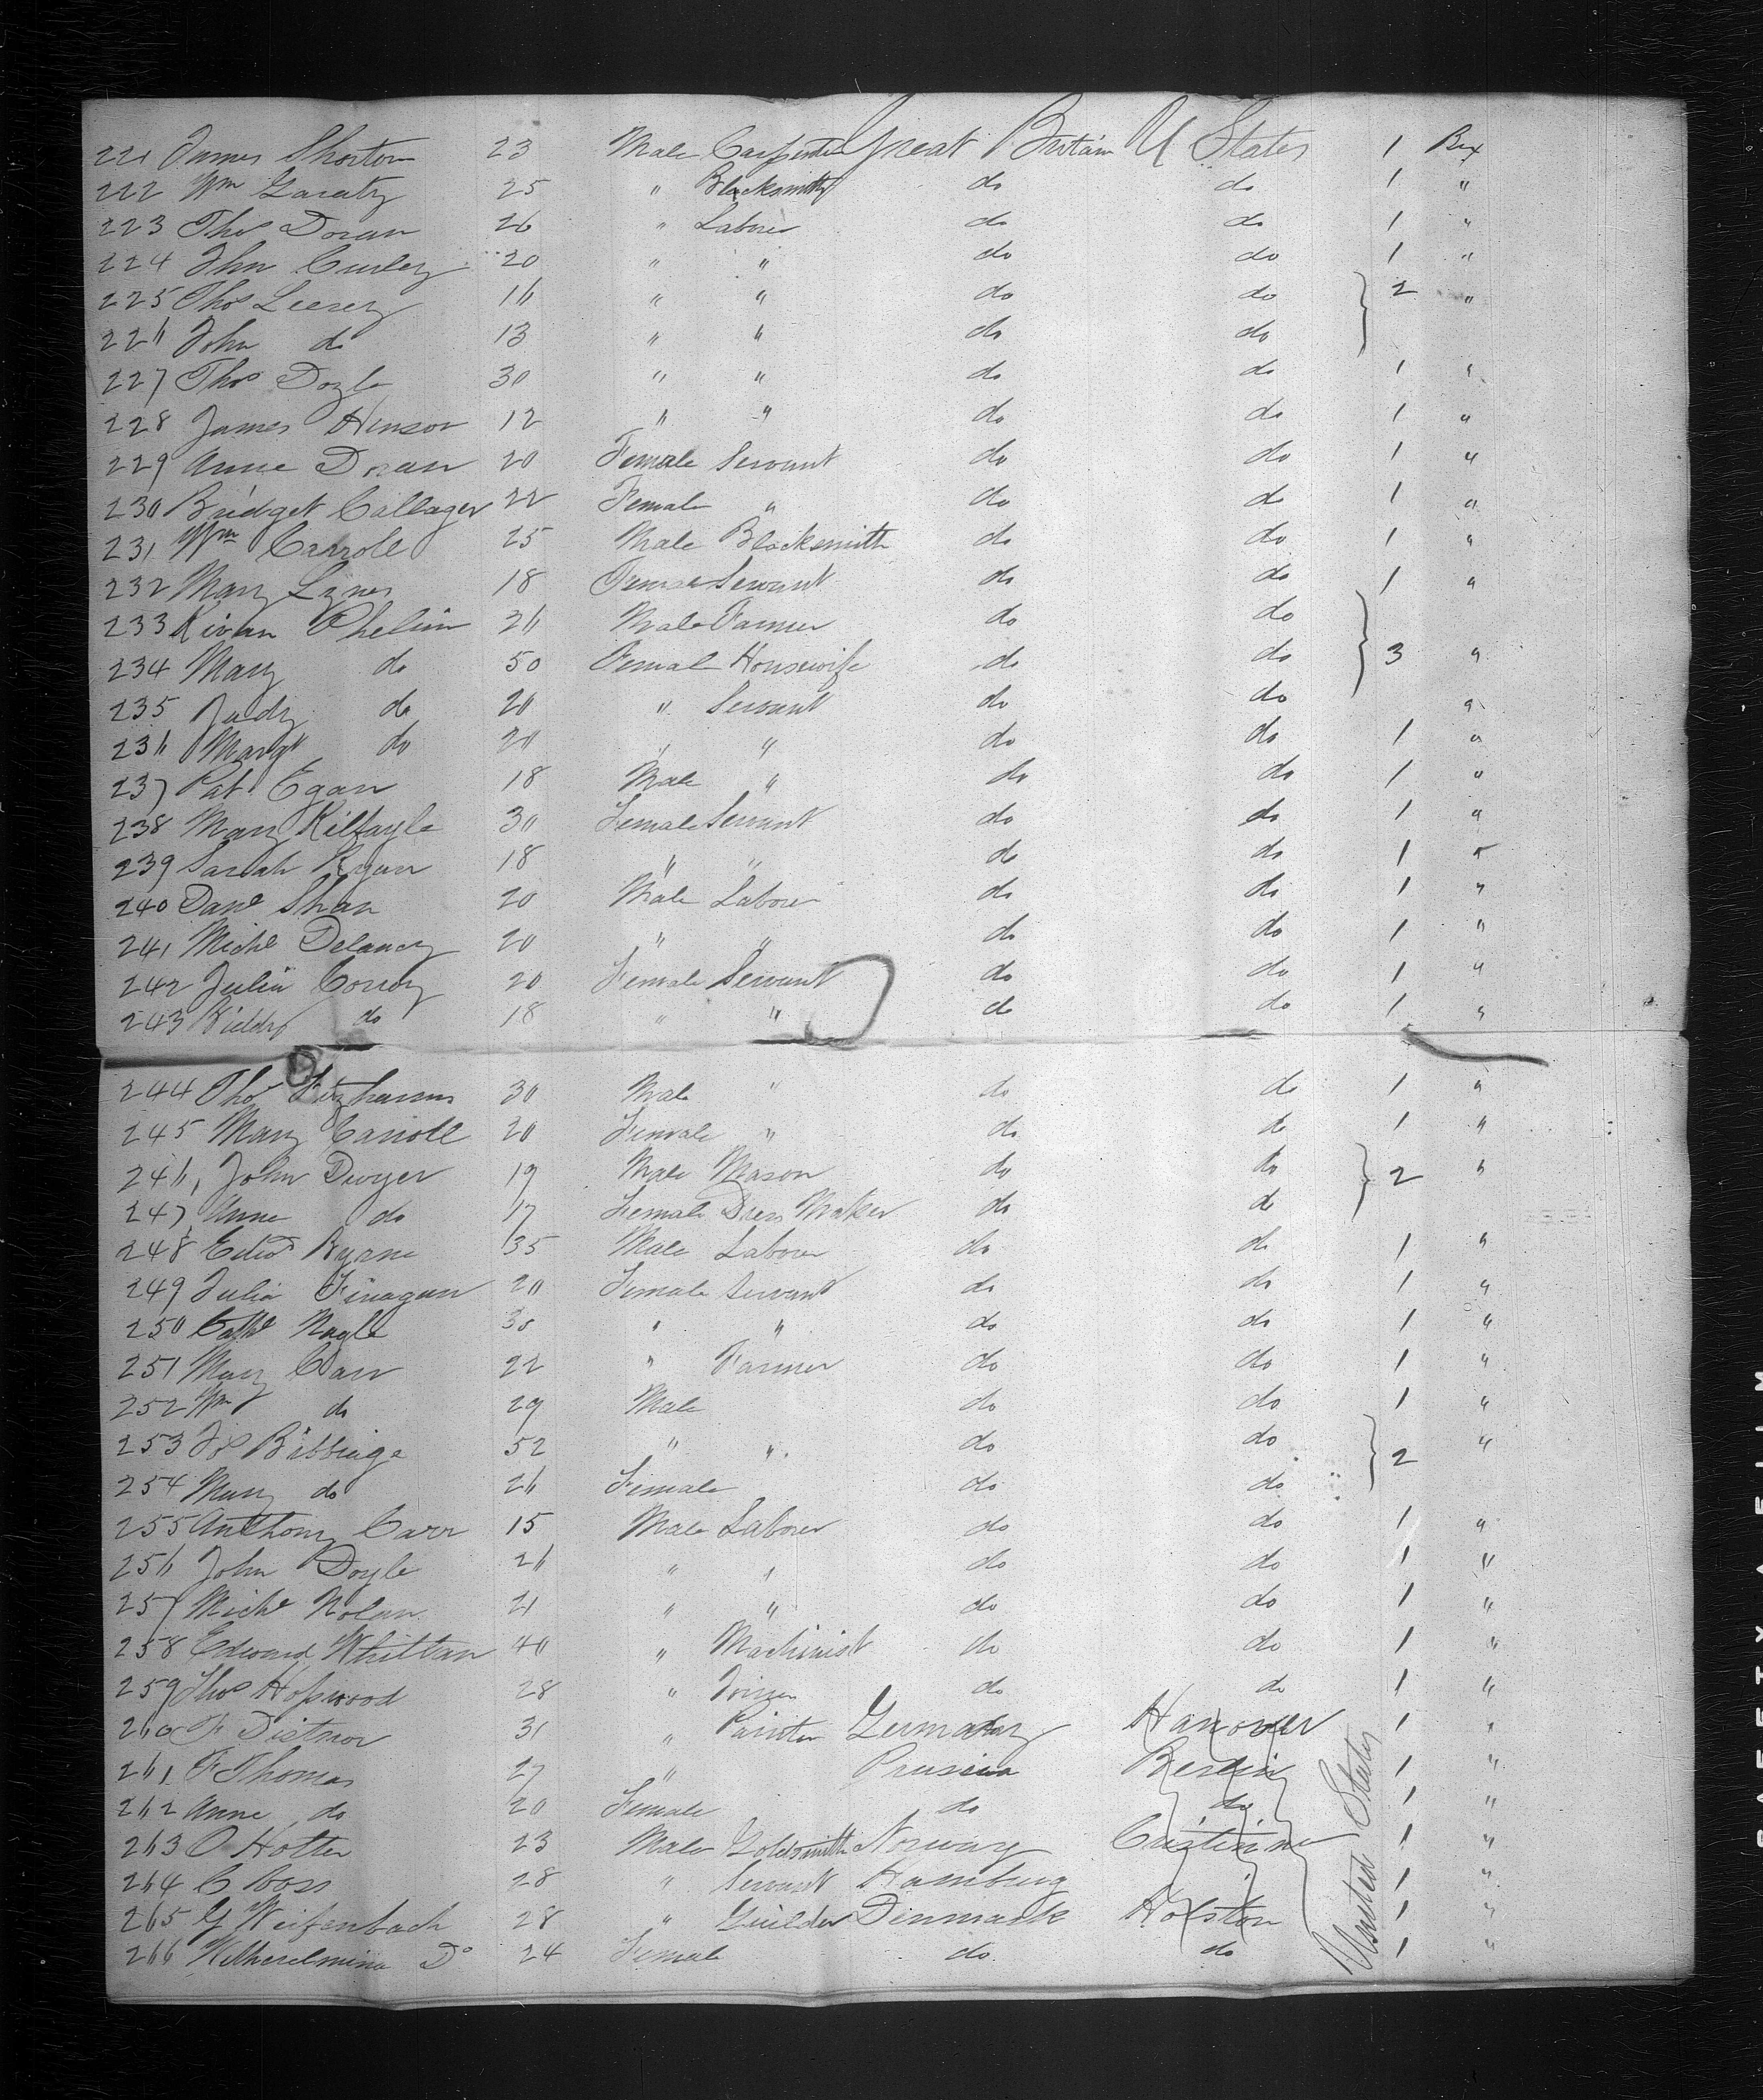 221 James Shorton 23 Male Carpenter Great Britain U States 1 Box
222 Wm Garaty 25 " Blacksmith do do 1 "
223 Thos Doran 26 " Laborer do do 1 "
224 Jhn Curley 20 " " do do 1 "
225 Thos Leesey 16 " " do do 2 "
226 John do 13 " " do do
227 Thos Doyle 30 " " do do 1 "
228 James Henson 12 " " do do 1 "
229 Anne Doran 20 Female Servant do do 1 "
230 Bridget Callager 22 Female " do do 1 "
231 Wm Carroll 25 Male Blacksmith do do 1 "
232 Mary Lynes 18 Female Servant do do 1 "
233 Kivan Phelim 26 Male Farmer do do
234 Mary do 50 Femal Housewife do do 3 "
235 Judy do 20 " Servant do do "
236 Margt do 20 " " do do 1 "
237 Pat Egan 18 Male " do do 1 "
238 Mary Kilfayle 30 Female Servant do do 1 "
239 Sarah Ryan 18 " " do do 1 "
240 Danl Shan 20 Male Laborer do do 1 "
241 Michl Delaney 20 " " do do 1 "
242 Julia Conroy 20 Female Servant do do 1 "
243 do 18 " " do do 1 "
244 Thos Fitzharris 30 Male " do do 1 "
245 Mary Carroll 20 Female " do do 1 "
246, John Dwyer 19 Male Mason do do 2 "
247 Anne do 17 Female Dress Maker do do
248 Edwd Byrne 35 Male Laborer do do 1 "
249 Julia Finagan 20 Female Servant do do 1 "
250 Cathe Nagle 30 " " do do 1 "
251 Mary Carr 22 " Farmer do do 1 "
252 Wm do 29 Male do do 1 "
253 Js Bassinge 52 " " do do 2 "
254 Mary do 26 Female do do
255 Anthony Carr 15 Male Laborer do do 1 "
256 John Doyle 26 " " do do 1 "
257 Michl Nolan 21 " " do do 1 "
258 Edward Whittan 40 " Machinist do do 1 "
259 Thos Hopwood 28 " Joiner do do 1 "
260 F Dietmor 31 " Painter Germany Hanover 1 "
261 F Thomas 27 " Prussia Berlin 1 "
262 Anne do 20 Female do do 1 "
263 O Hotter 23 Male Goldsmith Norway Cristiania 1 "
264 C Boss 28 " Servant Hamburg 1 "
265 G Weifenbach 28 " Guilder Dinmark Holston 1 "
266 Wilhercelmina Do 24 Female do do 1 "
United States